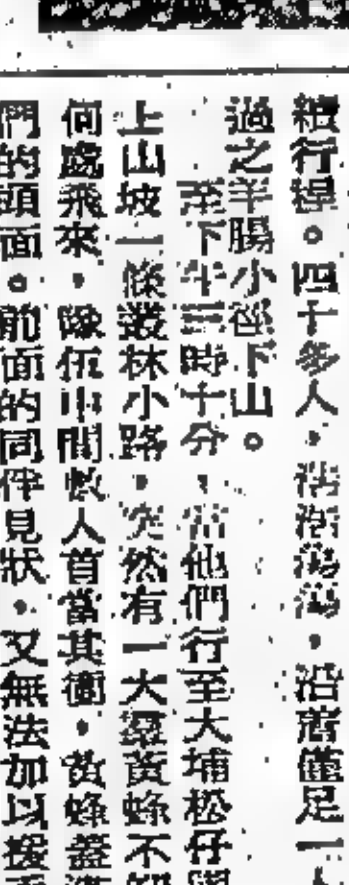 續行程。四十多人,浩浩蕩蕩,沿着僅足一人
過之羊腸小徑下山。
至下午三時十分,當他們行至大埔松仔
上山坡一條叢林小路,突然有一大羣黃蜂不知
何處飛來,隊伍中間數人首當其衝,黃蜂蓋
們的頭面。前面的同伴見狀,又無法加以援